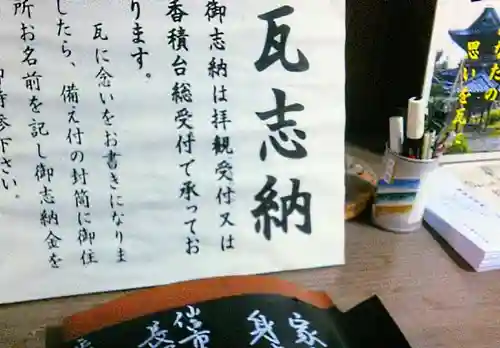 瓦志納
御志納は拝観受付又は
香積台総受付で承ってお
ります。
瓦に念いをお書きになりま
したら、備え付の封筒に御住
所お名前を記し御志納金を
御持参下さい。
なたの
思いを瓦
家
身
仙